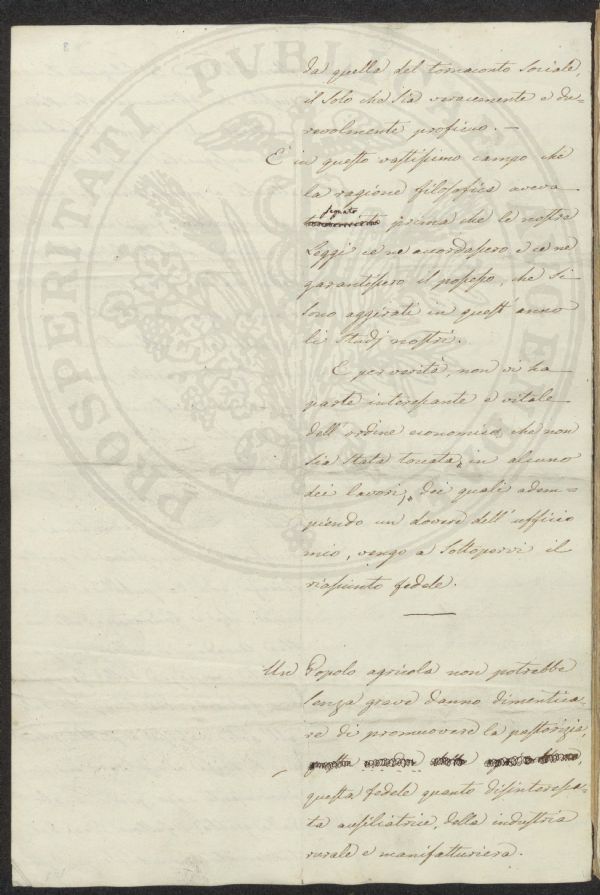 da quella del tornaconto sociale,
il solo che sia veracemente e du-
revolmente proficuo. —
E in questo vastissimo campo che
la ragione filosofica aveva
segnato
prima che le nostre
Leggi ce ne accordassero e ce ne
garantissero il possesso, che si
sono aggirati in quest'anno
li studj nostri.
E per verità, non vi ha
parte interessante e vitale
dell'ordine economico che non
sia stata toccata in alcuno
dei lavori, dei quali adem-
piendo un dovere dell'ufficio
mio, vengo a sottoporvi il
riassunto fedele.
Un Popolo agricola non potrebbe
senza grave danno dimentica-
re di promuovere la pastorizia,
questa fedele quanto disinteressa-
ta ausiliatrice della industria
rurale e manifatturiera.
PROSPERITATI PVBLICAE